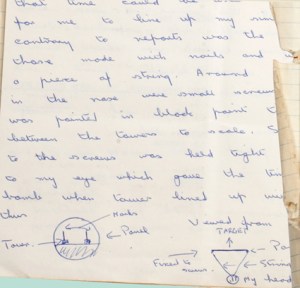 that time could be
for me to line up my
contrary to reports was the
those made with nails and
a piece of string. Around
in the nose were small screws
was painted in black paint
between the towers to scale. S
to the screws was held tight
to my eye which gave the
bomb when tower lined up
thus
Marks
Panel
Tower
Viewed from
TARGET
Fixed to
screws
Pan
String
My head